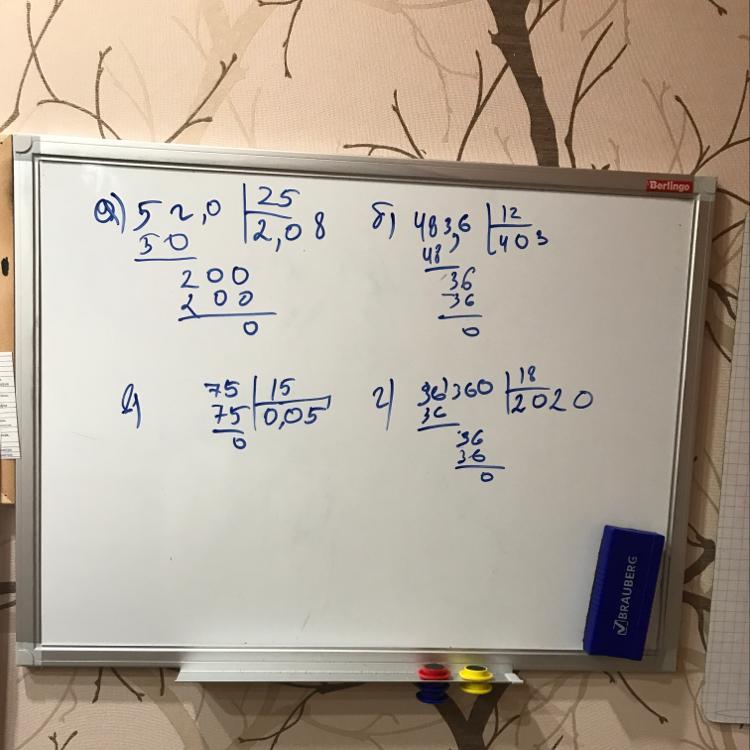 Berlingo
а) 52,0 | 25
50 | 2,08
200
200
0
б) 4836 | 12
48 | 403
36
36
0
в) 75 | 15
75 | 0,05
0
г) 36'360 | 18
36 | 2020
36
36
0
BRAUBERG